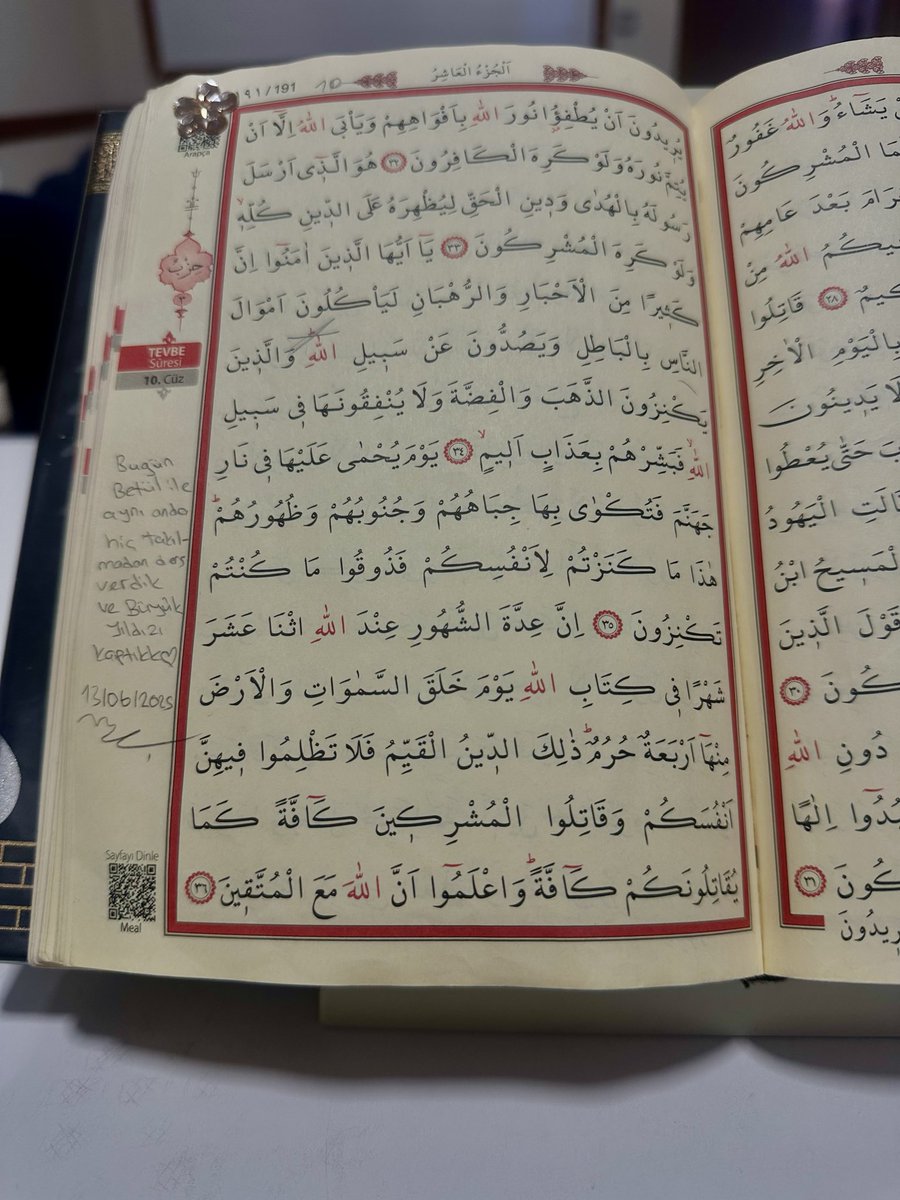 ١٩١/191
10
اَلْجُزْءُ الْعَاشِرُ
Arapça
يُرِيدُونَ اَنْ يُطْفِؤُا نُورَ اللّٰهِ بِاَفْوَاهِهِمْ وَيَأْبَى اللّٰهُ اِلَّٓا اَنْ
يُتِمَّ نُورَهُ وَلَوْ كَرِهَ الْكَافِرُونَ ﴿٣٢﴾ هُوَ الَّذ۪ٓى اَرْسَلَ
رَسُولَهُ بِالْهُدٰى وَد۪ينِ الْحَقِّ لِيُظْهِرَهُ عَلَى الدّ۪ينِ كُلِّه۪ۙ
وَلَوْ كَرِهَ الْمُشْرِكُونَ ﴿٣٣﴾ يَٓا اَيُّهَا الَّذ۪ينَ اٰمَنُٓوا اِنَّ
كَث۪يرًا مِنَ الْاَحْبَارِ وَالرُّهْبَانِ لَيَأْكُلُونَ اَمْوَالَ
النَّاسِ بِالْبَاطِلِ وَيَصُدُّونَ عَنْ سَب۪يلِ اللّٰهِۜ وَالَّذ۪ينَ
يَكْنِزُونَ الذَّهَبَ وَالْفِضَّةَ وَلَا يُنْفِقُونَهَا ف۪ى سَب۪يلِ
اللّٰهِۙ فَبَشِّرْهُمْ بِعَذَابٍ اَل۪يمٍۙ ﴿٣٤﴾ يَوْمَ يُحْمٰى عَلَيْهَا ف۪ى نَارِ
جَهَنَّمَ فَتُكْوٰى بِهَا جِبَاهُهُمْ وَجُنُوبُهُمْ وَظُهُورُهُمْۜ
هٰذَا مَا كَنَزْتُمْ لِاَنْفُسِكُمْ فَذُوقُوا مَا كُنْتُمْ
تَكْنِزُونَ ﴿٣٥﴾ اِنَّ عِدَّةَ الشُّهُورِ عِنْدَ اللّٰهِ اثْنَا عَشَرَ
شَهْرًا ف۪ى كِتَابِ اللّٰهِ يَوْمَ خَلَقَ السَّمٰوَاتِ وَالْاَرْضَ
مِنْهَٓا اَرْبَعَةٌ حُرُمٌۜ ذٰلِكَ الدّ۪ينُ الْقَيِّمُ فَلَا تَظْلِمُوا ف۪يهِنَّ
اَنْفُسَكُمْ وَقَاتِلُوا الْمُشْرِك۪ينَ كَٓافَّةً كَمَا
يُقَاتِلُونَكُمْ كَٓافَّةًۜ وَاعْلَمُٓوا اَنَّ اللّٰهَ مَعَ الْمُتَّق۪ينَ ﴿٣٦﴾
حزب
٣
TEVBE
Sûresi
10. Cüz
Bugün
Betül ile
aynı anda
hiç takıl-
madan ders
verdik
ve Büyük
Yıldızı
kaptıkk♡
13/06/2025
Sayfayı Dinle
Meal
يَشَٓاءُۜ وَاللّٰهُ غَفُورٌ
الْمُشْرِكُونَ
بَعْدَ عَامِهِمْ
اللّٰهُ مِنْ
﴿٢٨﴾ قَاتِلُوا
بِالْيَوْمِ الْاٰخِرِ
يَد۪ينُونَ
حَتّٰى يُعْطُوا
الْيَهُودُ
الْمَس۪يحُ ابْنُ
قَوْلَ الَّذ۪ينَ
﴿٣٠﴾
دُونِ اللّٰهِ
اِلٰهًا
﴿٣١﴾
يُر۪يدُونَ